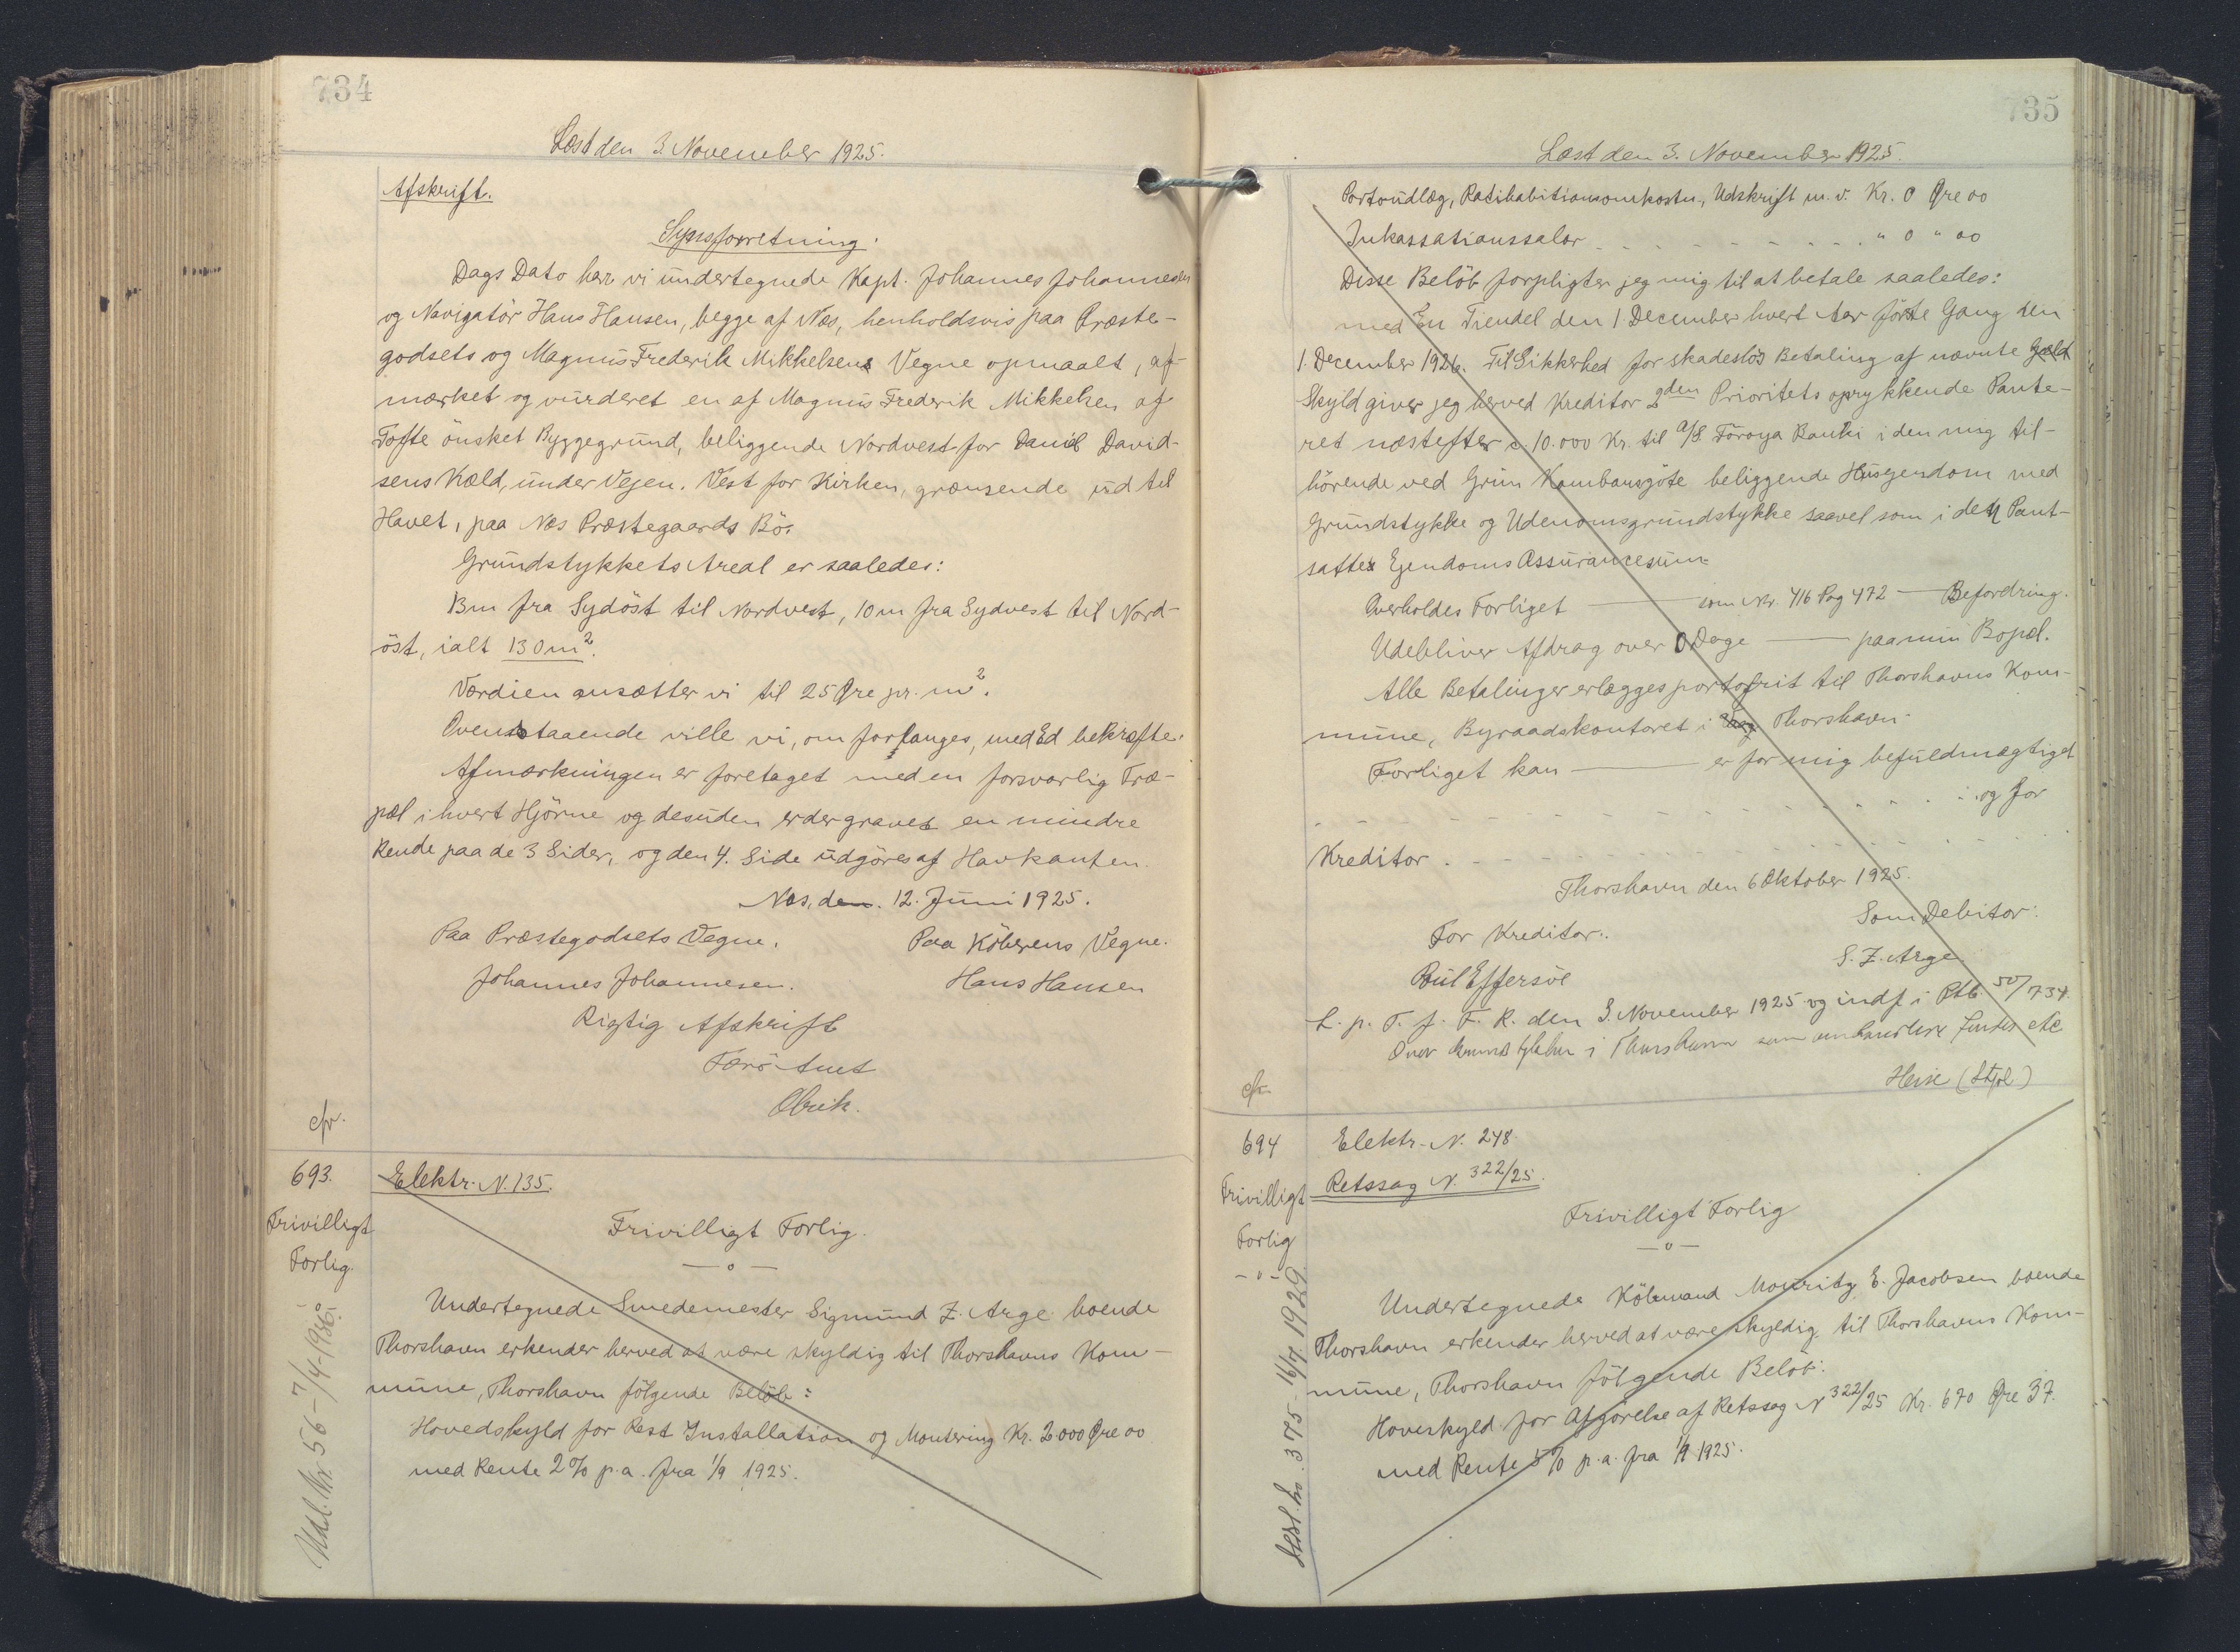 734
Læst den 3. November 1925.
Afskrift.
Synsforretning.
Dags Dato har vi undertegnede Kapt. Johannes Johannesen
og Navigatör Hans Hansen, begge af Næs, henholdsvis paa Præste-
godsets og Magnus Frederik Mikkelsens Vegne opmaalt, af-
mærket og vurderet en af Magnus Frederik Mikkelsen af
Tofte önsket Byggegrund, beliggende Nordvest for Daniel David-
sens Kæld, under Vejen. Vest for Kirken, grænsende ud til
Havet, paa Næs Præstegaards Bö.
Grundstykkets Areal er saaledes:
13m fra Sydöst til Nordvest, 10m fra Sydvest til Nord-
öst, ialt 130m².
Værdien ansætter vi til 25 Øre pr. m².
Ovenstaaende ville vi, om forlanges, med Ed bekræfte.
Afmærkningen er foretaget med en forsvarlig Træ-
pæl i hvert Hjörne og desuden er der gravet en mindre
Rende paa de 3 Sider, og den 4. Side udgöres af Havkanten.
Næs, den. 12. Juni 1925.
Paa Præstegodsets Vegne. Paa Köberens Vegne.
Johannes Johannesen. Hans Hansen
Rigtig Afskrift
Færö Amt
cfr.
693. Elektr. N. 135.
Frivilligt
Forlig.
Frivilligt Forlig.
Undertegnede Smedemester Sigmund Z. Arge boende
Thorshavn erkender herved at være skyldig til Thorshavns Kom-
mune, Thorshavn fölgende Belöb:
Hovedskyld for Rest Installation og Montering Kr. 2000 Øre 00
med Rente 2% p.a. fra 1/9 1925.
Udl. Nr. 56 - 7/4-1936.
735
Læst den 3. November 1925.
Portoudlæg, Ratihabitionsomkostn, Udskrift m. v. Kr. 0 Øre 00
Inkassationssalær " 0 " 00
Disse Belöb forpligter jeg mig til at betale saaledes:
med En Tiendel den 1 December hvert Aar förste Gang den
1. December 1926. Til Sikkerhed for skadeslös Betaling af nævnte Gæld
Skyld giver jeg herved Kreditor 2den Prioritets oprykkende Pante-
ret næstefter c. 10.000 Kr. til A/S Föroya Banki i den mig til-
hörende ved Grim Kambansgöte beliggende Husejendom med
Grundstykke og Udenomsgrundstykke saavel som i den Pant-
satte Ejendoms Assurancesum
Overholdes Forliget — som Nr. 416 Pag 472 — Befordring.
Udebliver Afdrag over 0 Dage — paa min Bopæl.
Alle Betalinger erlægges portofrit til Thorshavns Kom-
mune, Byraadskontoret i Thorshavn.
Forliget kan — er for mig befuldmægtiget
og for
Kreditor
Thorshavn den 6 Oktober 1925.
For Kreditor: Som Debitor:
Poul Effersöe S. Z. Arge.
L. p. T. f. F. R. den 3. November 1925 og indf i Ptb. 50/734.
i Thorshavn
cfr.
694 Elektr. N. 248
Frivilligt Retssag N. 322/25.
Forlig
Frivilligt Forlig
Undertegnede Köbmand Mouritz E. Jacobsen boende
Thorshavn erkender herved at være skyldig til Thorshavns Kom-
mune, Thorshavn fölgende Belöb:
Hoveskyld for Afgörelse af Retssag N 322/25 Kr. 670 Øre 37.
med Rente 5% p.a. fra 1/9 1925.
375 - 16/7 1929.